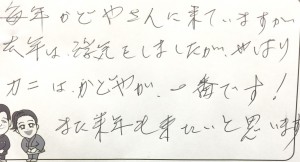 毎年かどやさんに来ていますが
去年は、浮気をしましたが、やはり
カニは、かどやが、一番です!
また来年も来たいと思います